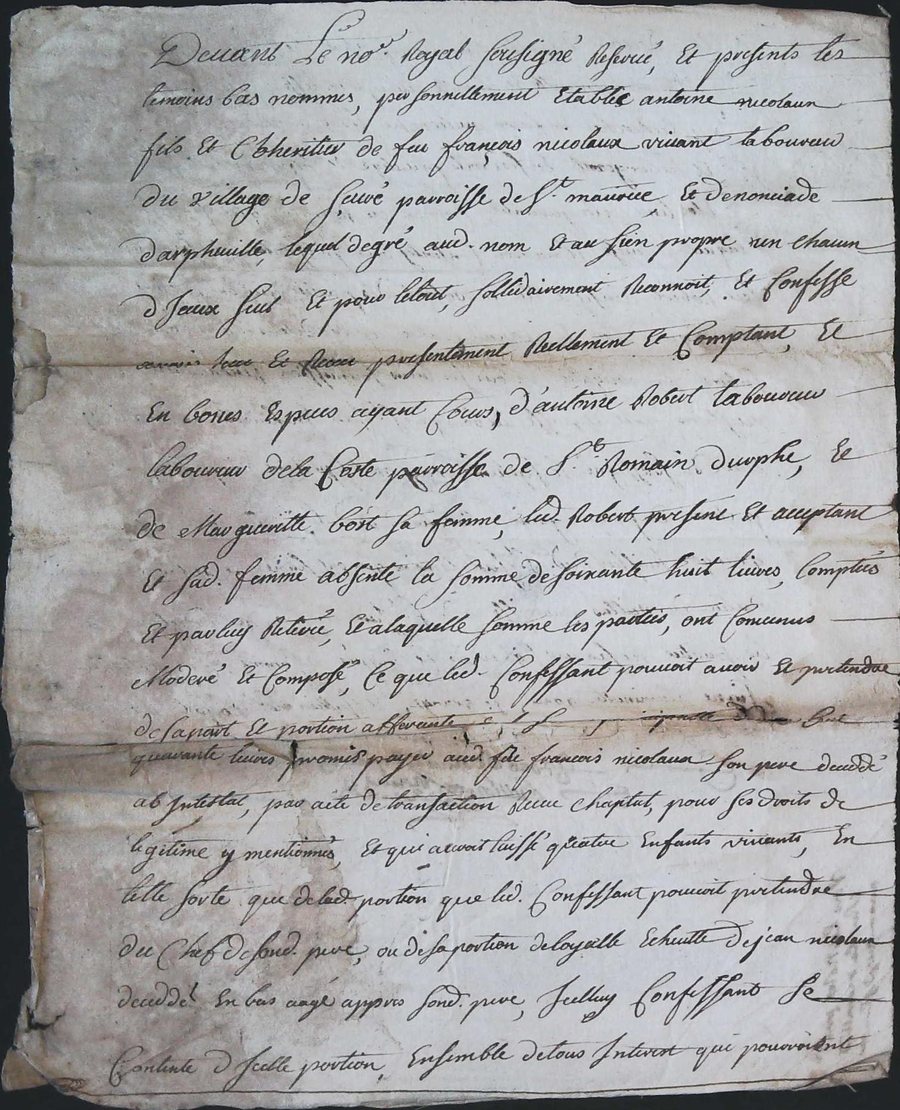 Devant Le no.re Royal sousigné Réservé, Et présents les
temoins bas nommés, personnellement Etablie antoine nicolaux
fils Et Coheritier de feu françois nicolaux vivant laboureur
du village de parroisse de St. maurice Et
d'arpheuille, lequel degré aud. nom Et au sien propre un chacun
d'Iceux seul Et pour le tout, sollidairement Reconnoit, Et Confesse
avoir heu Et Receu presentement Reellement Et Comptant, Et
En bones Especes ayant Cours, d'antoine Robert laboureur
laboureur de la Coste parroisse de St. Romain durphe, Et
de Margueritte bost sa femme, led. Robert présent Et acceptant
Et sad. femme absente la somme de soixante huit livres, Comptées
Et par luy Retirée, Et a laquelle somme les parties, ont Comunus
Moderé Et Composé, Ce que led. Confessant pouvoit avoir Et prétendre
de sa part Et portion afferante
quarante livres promis payer aud. feu françois nicolaux son pere decedé
ab Intestat, par acte de transaction Receu chaptal, pour ses droits de
legitime y mentionnés, Et qui auroit laissé quatre Enfants vivants, En
telle sorte que de lad. portion que led. Confessant pouvoit prétendre
du Chef de sond. pere, ou de sa portion de Echeutte de jean nicolaux
decedé En bas aagé appres sond. pere, Icelluy Confessant se
Contente d'Icelle portion, Ensemble de tous Interest qui pourroient